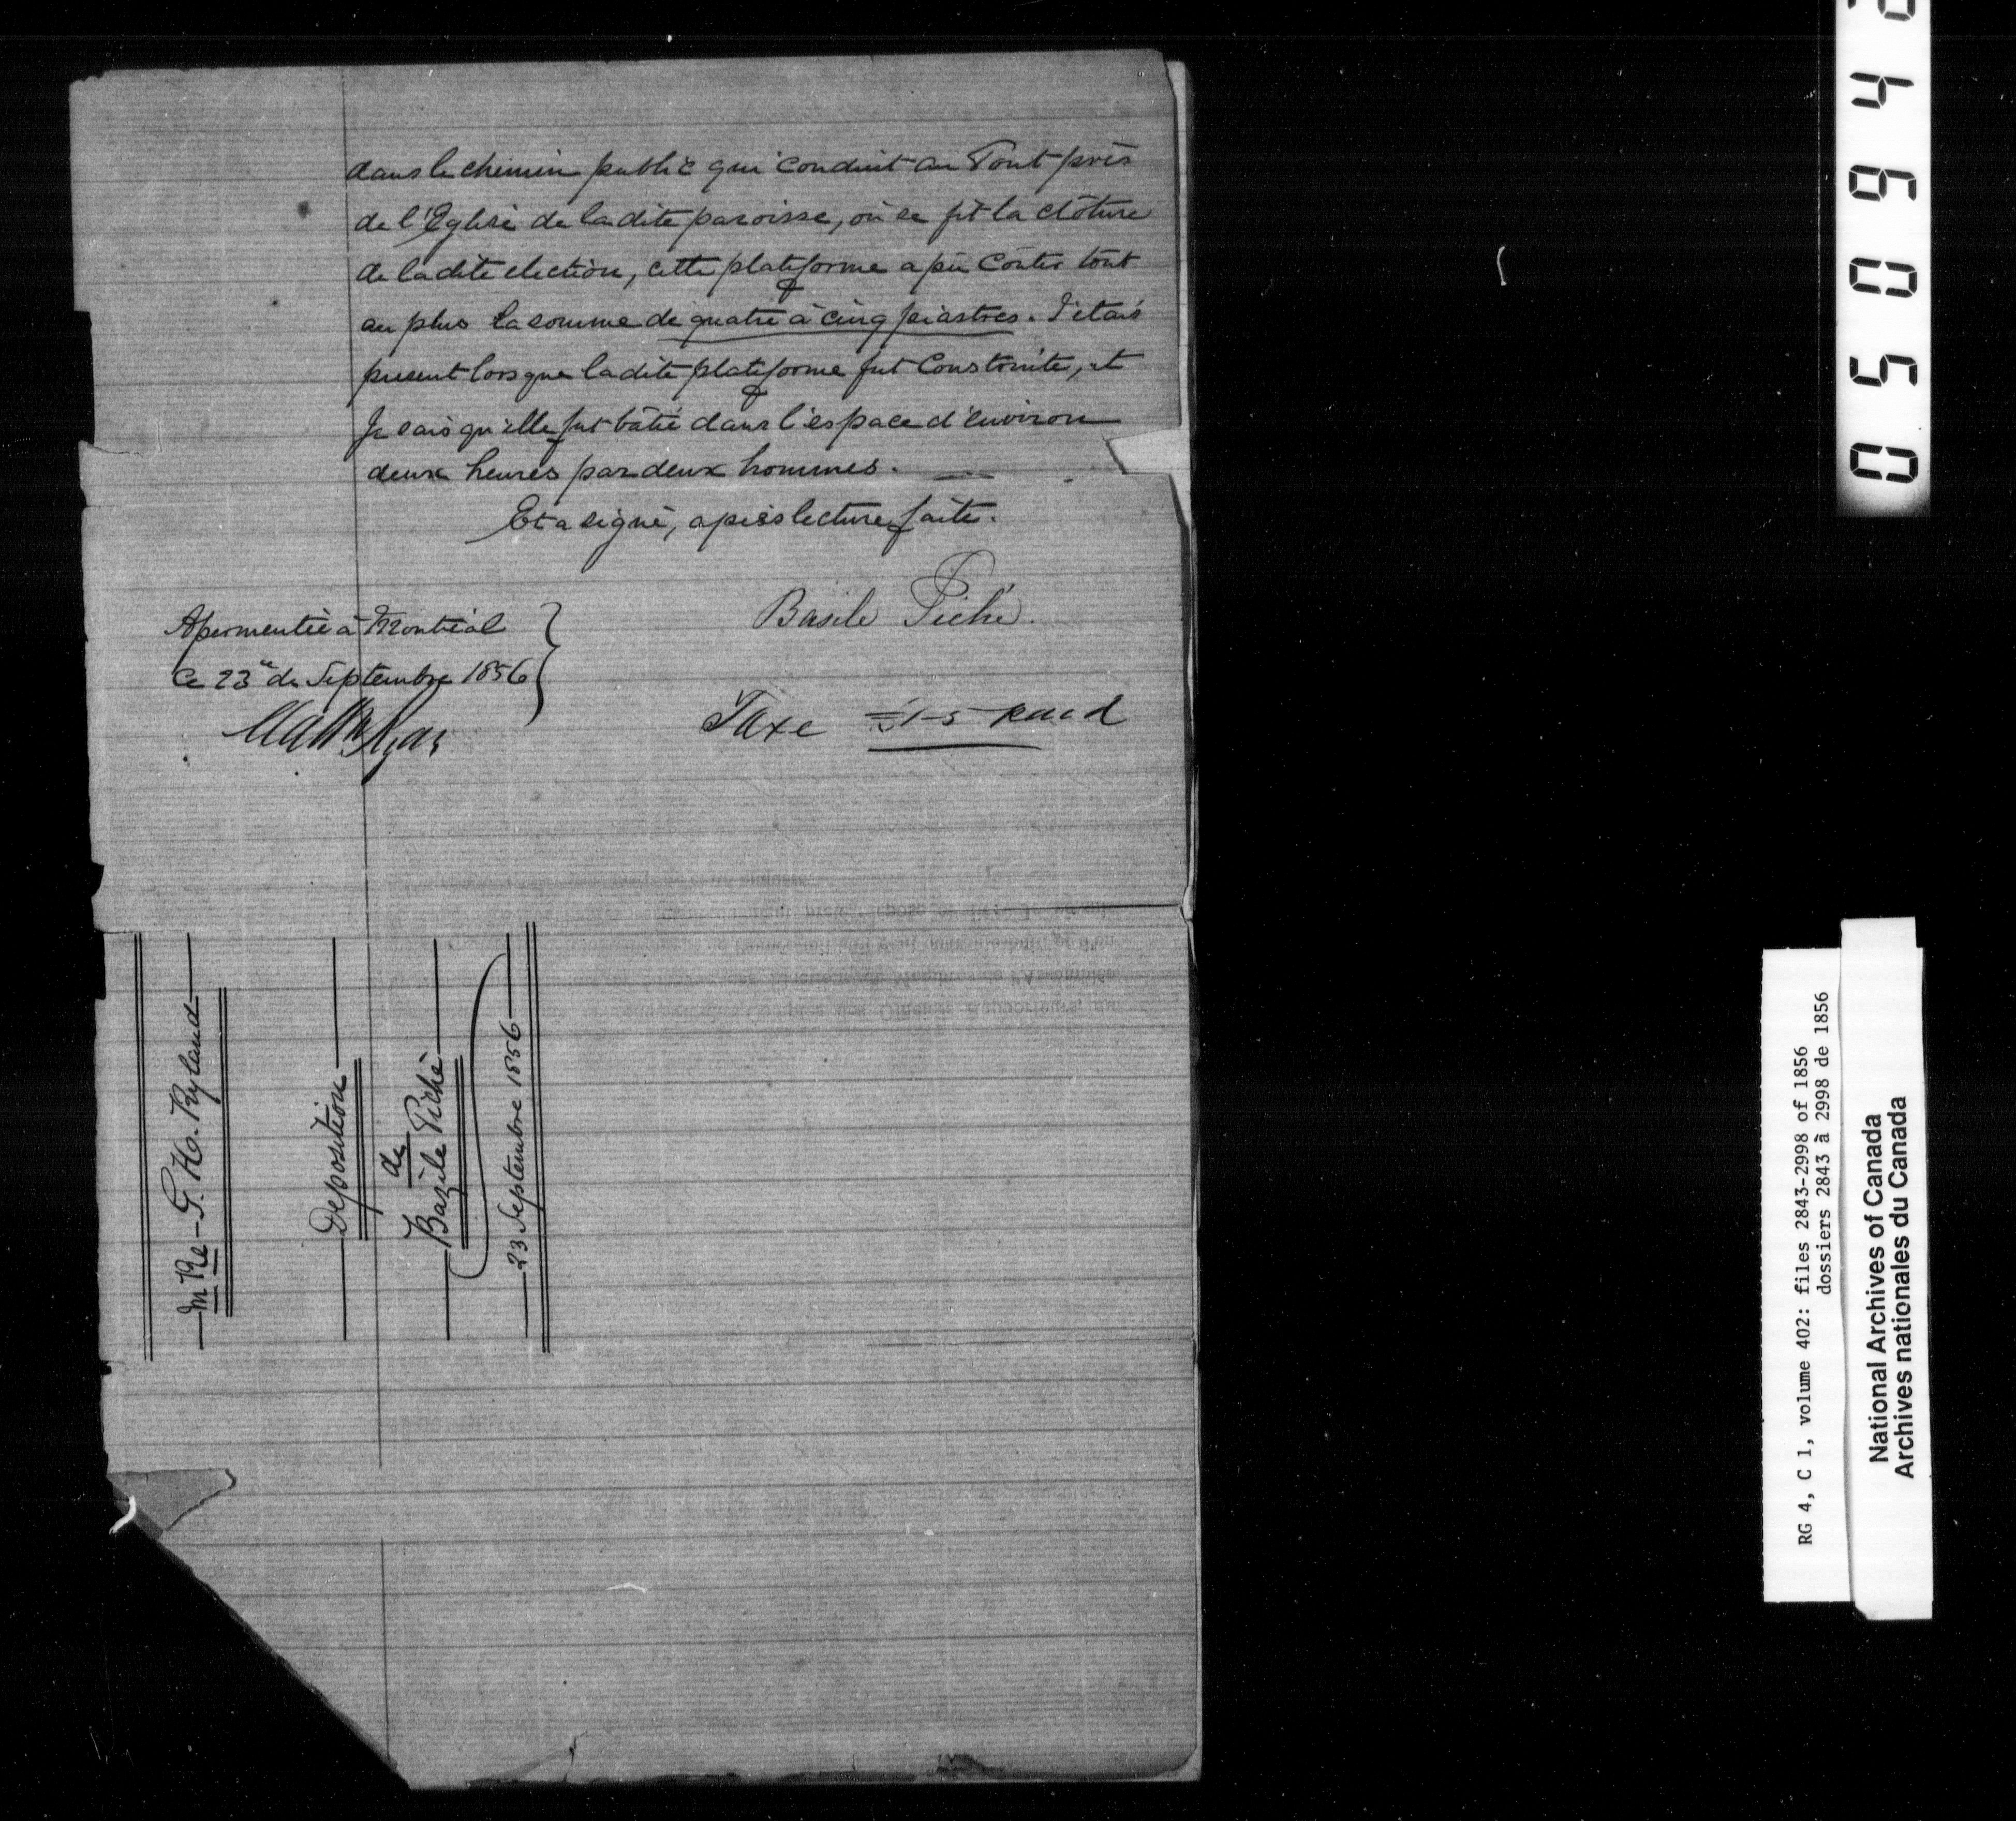 dans le chemin public qui conduit au Pont près
de l'Eglise de la dite paroisse, où se fit la clôture
de la dite election, cette plateforme a pû coûter tout
au plus la somme de quatre à cinq piastres. J'étais
present lorsque la dite plateforme fut construite, et
Je sais qu'elle fut bâtie dans l'espace d'environ
deux heures par deux hommes.
Et a signé, après lecture faite.
Basile Piché.
Asermentée à Montréal
Ce 23e de Septembre 1856
Taxe £1-5
In Re - G. H. Ryland
Deposition
de
Bazile Piché
23 Septembre 1856
05094
RG 4, C 1, volume 402: files 2843-2998 of 1856
dossiers 2843 à 2998 de 1856
National Archives of Canada
Archives nationales du Canada